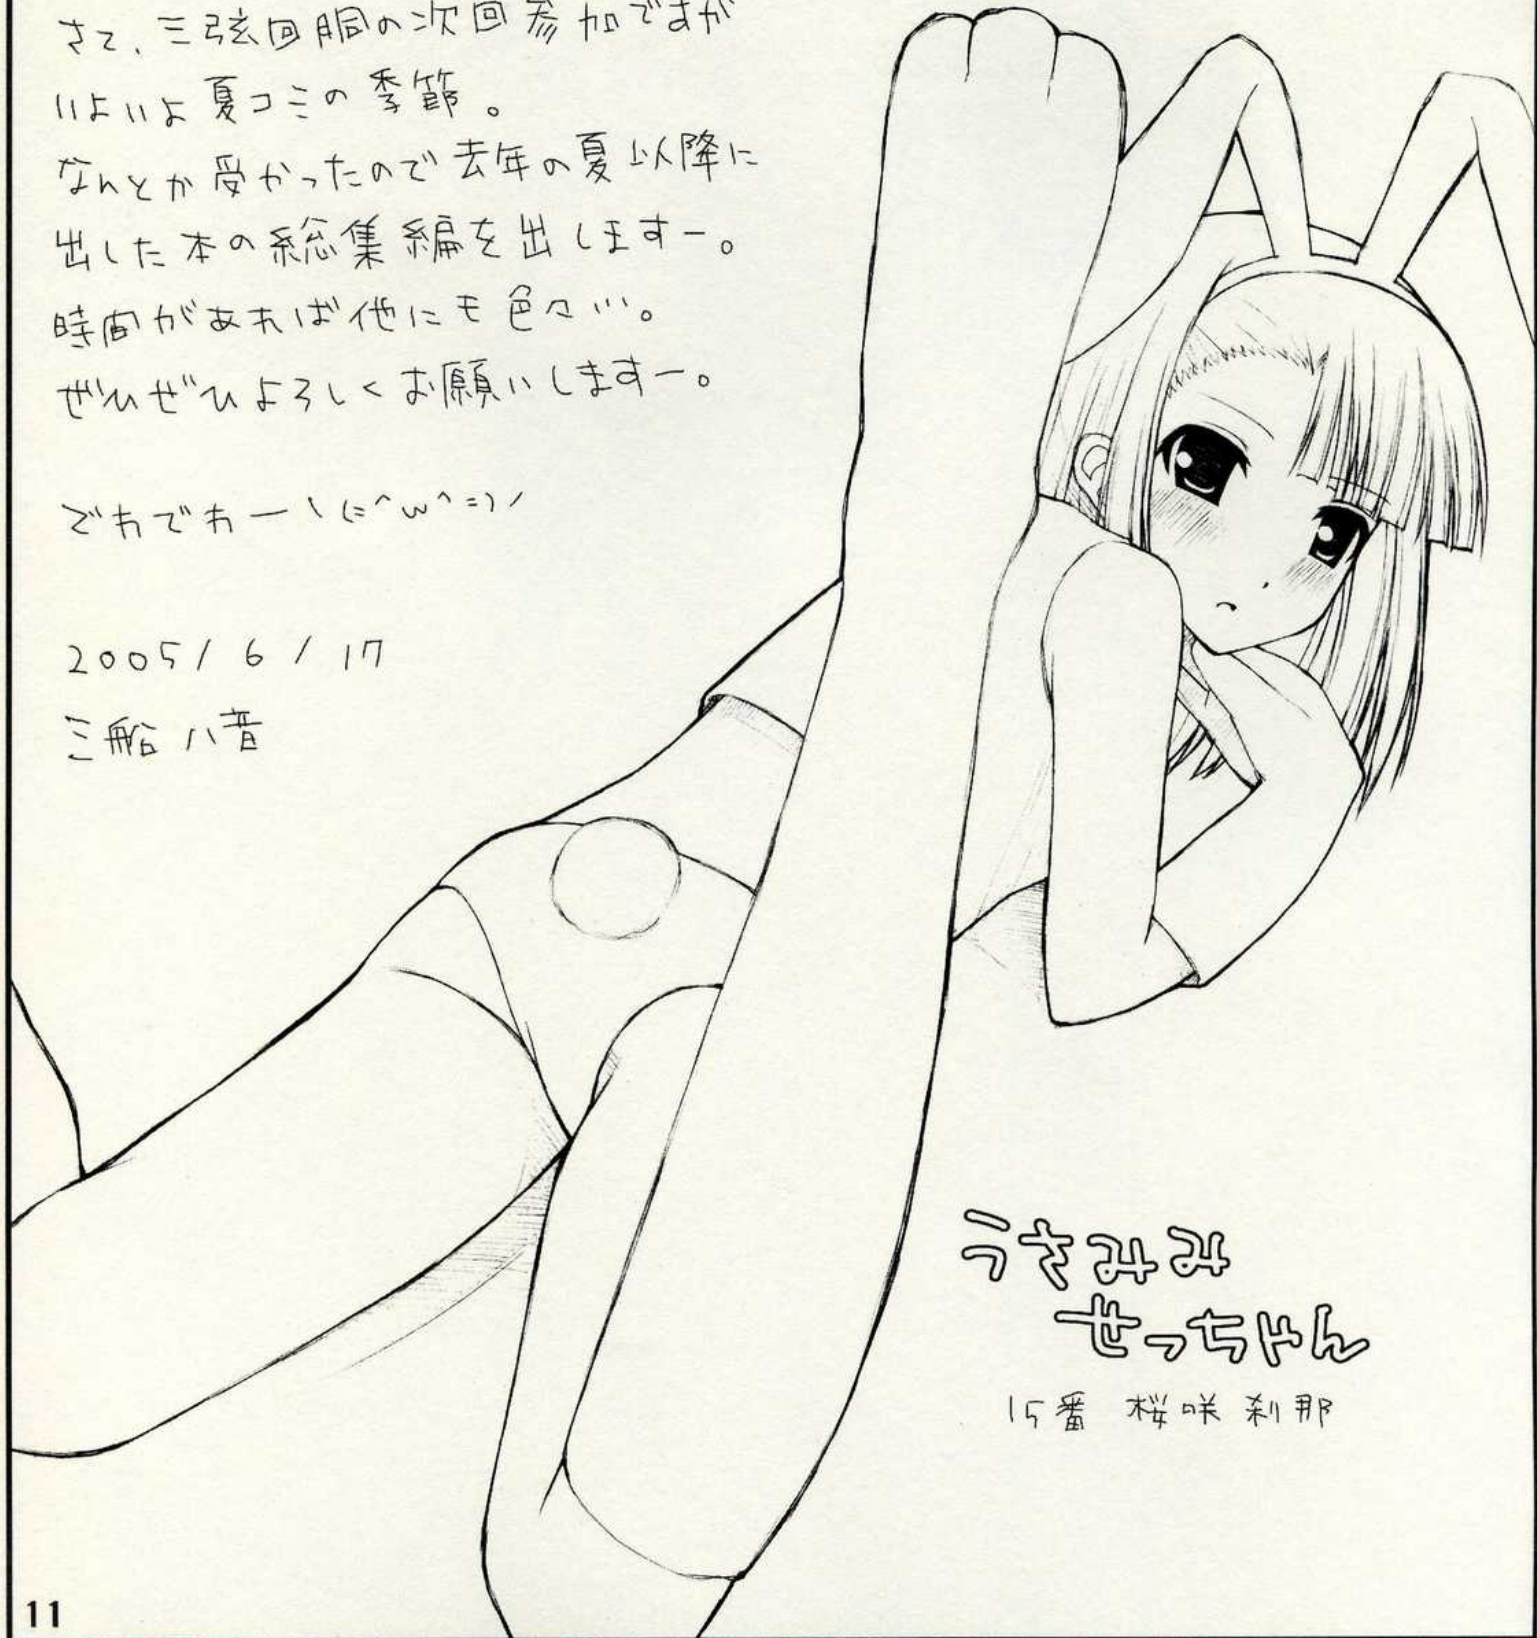 さて、三弦回胴の次回参加ですが
いよいよ夏コミの季節。
なんとか受かったので去年の夏以降に
出した本の総集編を出しますー。
時間があれば他にも色々…。
ぜひぜひよろしくお願いしますー。
でわでわーヽ(=^w^=)ノ
2005/6/17
三船八音
うさみみ
せっちゃん
15番 桜咲刹那
11